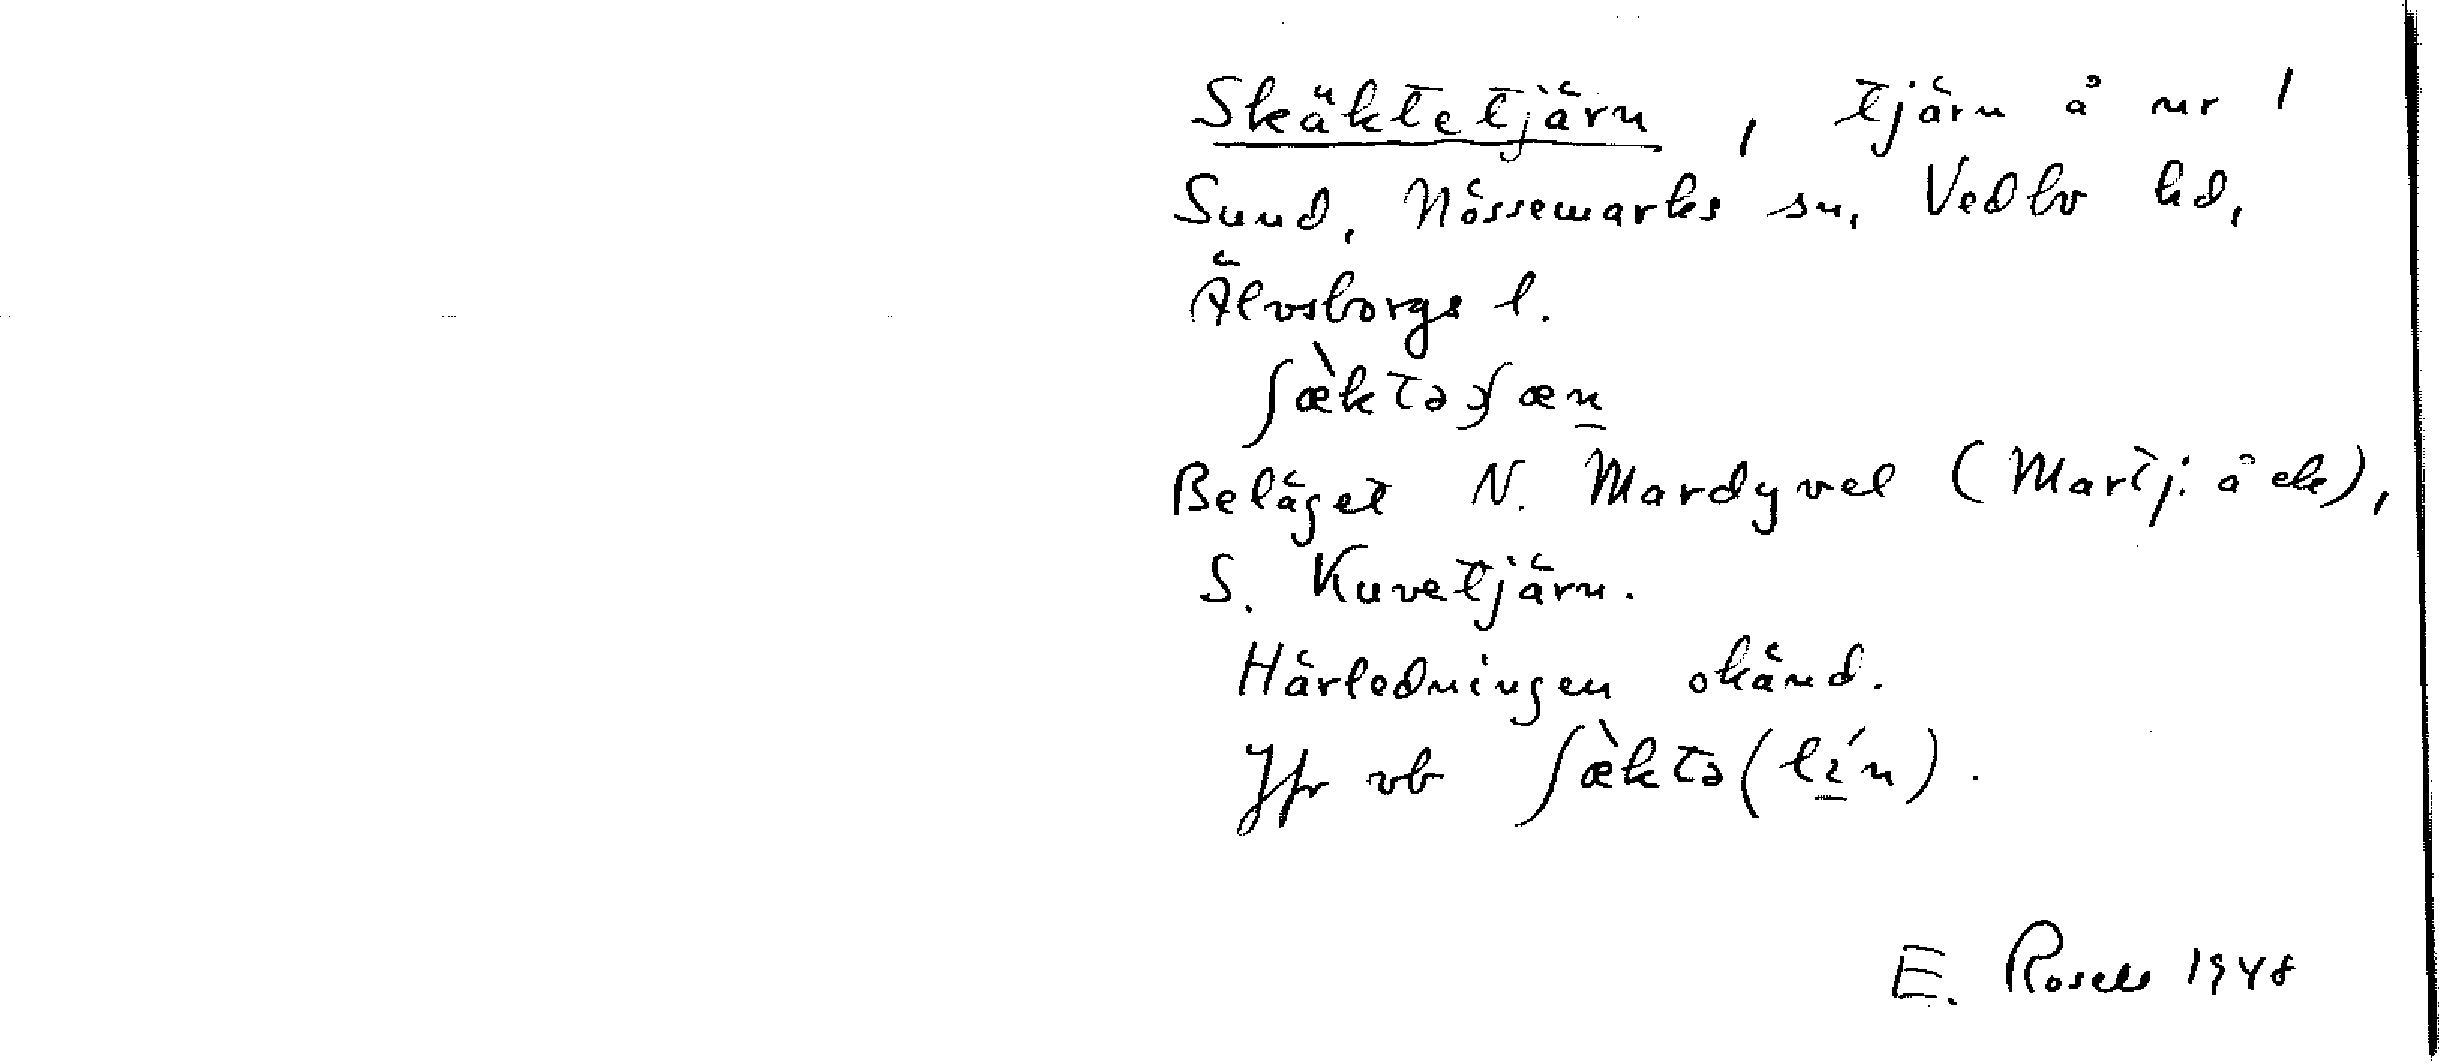 Skäktetjärn, tjärn å nr 1
Sund, Nössemarks sn, Vedbo hd,
Älvsborgs l.
ʃæ̀ktəʃæn
Beläget N. Mardyvel (Martj. å ek),
S. Kuvetjärn.
Härledningen okänd.
Jfr vb ʃæ̀ktə (lín).
E. Rosell 1948